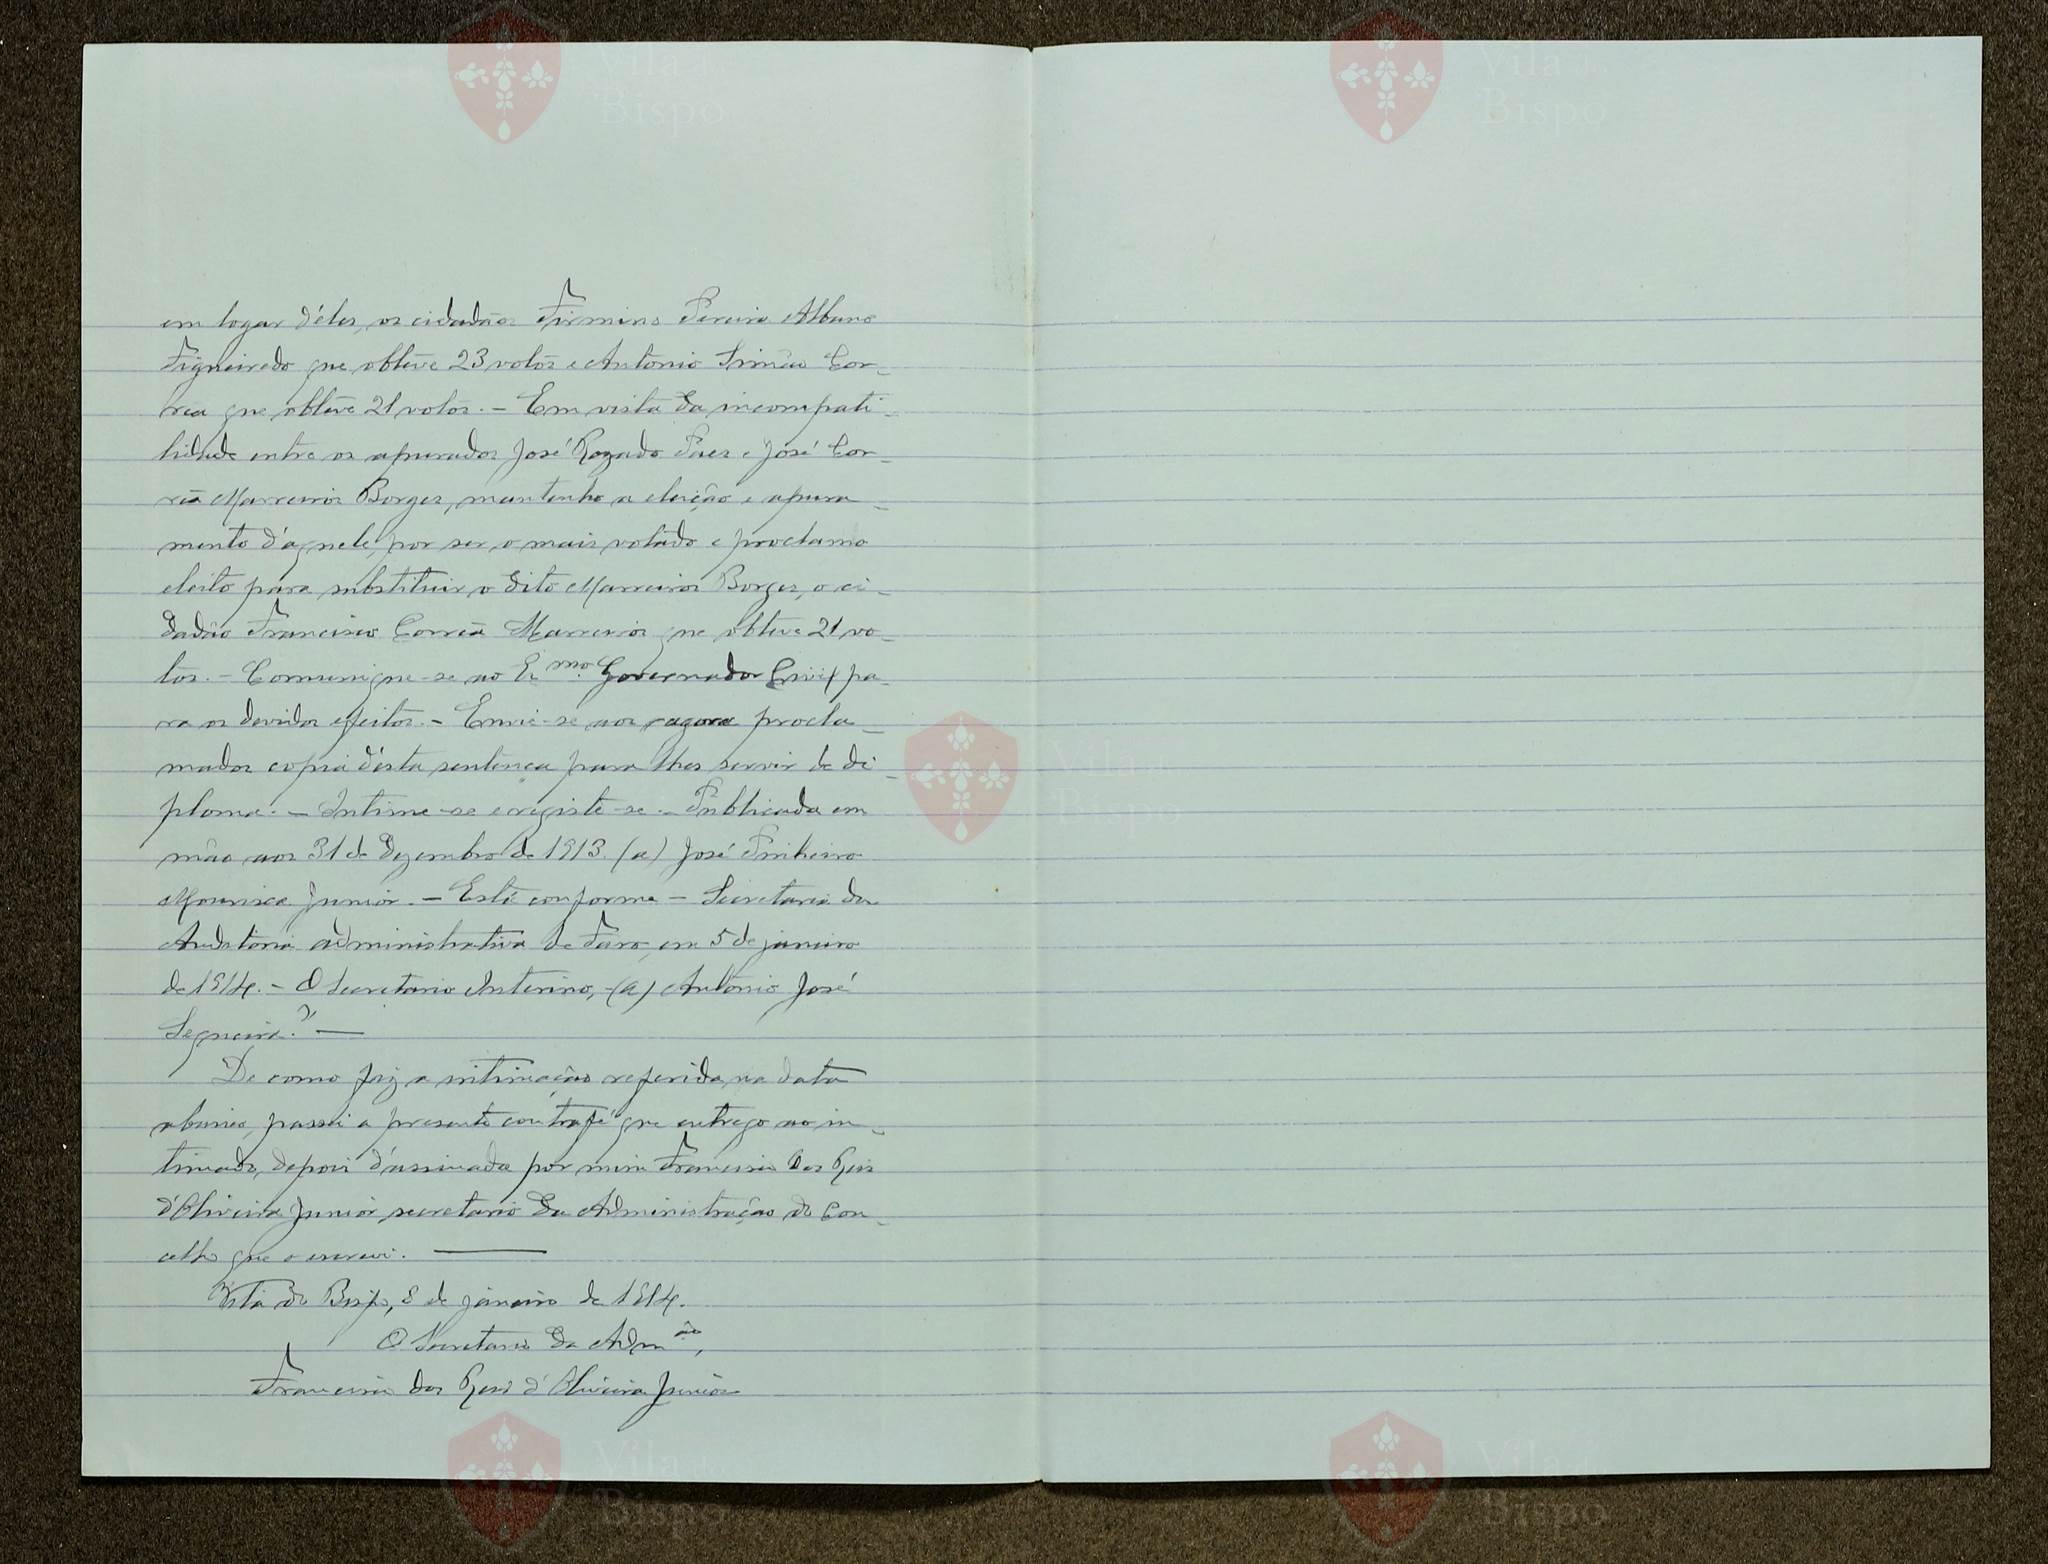 em logar d'éles, os cidadãos Firmino Pereira Albano
Figueiredo que obteve 23 votos e Antonio Simão Cor-
rêa que obteve 21 votos. — Em vista da incompati-
lidade entre os apurados José Rozado Paes e José Cor-
rêa Marreiros Borges, mantenho a eleição e apura-
mento d'aquele, por ser o mais votado e proclamo
eleito para substituir o dito Marreiros Borges, o ci-
dadão Francisco Corrêa Marreiros que obteve 21 vo-
tos. — Comunique-se ao Ex.mo Governador Civil pa-
ra os devidos efeitos. — Envie-se aos agora procla-
mados copia désta sentença para lhes servir de di-
ploma. — Intime-se e registe-se. — Publicada em
mão aos 31 de Dezembro de 1913. (a) José Pinheiro
Mourisca Junior. — Está conforme — Secretaria da
Auditoria administrativa de Faro, em 5 de janeiro
de 1914. — O Secretario Interino, — (a) Antonio José
Sequeira." —
De como fiz a intimação referida, na data
abaixo, passei a presente contrafé que entrego ao in-
timado, depois d'assinada por mim Francisco dos Reis
d'Oliveira Junior secretario da Administração do Con-
celho que o escrevi. —
Vila do Bispo, 8 de janeiro de 1914.
O Secretario da Adm.ão,
Francisco dos Reis d'Oliveira Junior
Vila do
Bispo
Vila do
Bispo
Vila do
Bispo
Vila do
Bispo
Vila do
Bispo